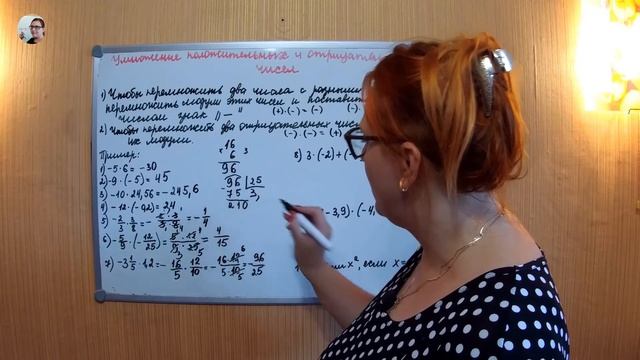 Умножение положительных и отрицат
чисел
1) Чтобы перемножить два числа с разными
перемножить модули этих чисел и поставить
числом знак „ — “ (+)·(-) = (-) (-)·
2) Чтобы перемножить два отрицательных чис
их модули. (-)·(-) = (+)
Пример:
1) -5·6 = -30
2) -9·(-5) = 45
3) -10·24,56 = -245,6
4) -12·(-0,2) = 2,4
5) -2/3·3/8 = - = -1/4
6) -5/9·(-12/25) = 5·12/9·25 = 4/15
7) -3 1/5·1,2 = -16/5·12/10 = -16·12/5·10 = -96/25
16
6
96
96 25
75 3,
210
8) 3·(-2)+(-
-3,9)·(-4,
x², если x =